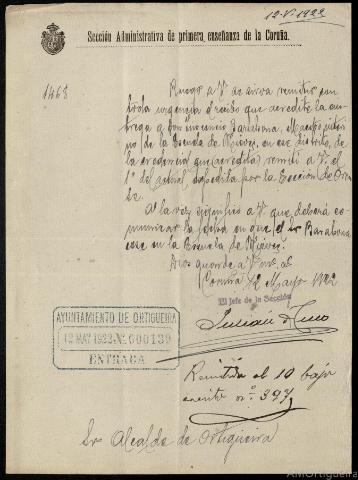 12-V-1922
Sección Administrativa de primera enseñanza de la Coruña.
1468
Ruego a V. se sirva remitir con
toda urgencia el recibo que acredite la en-
trega a Don Barabona, Maestro interi-
no de la Escuela de en ese distrito, de
la credencial que remití a V. el
1º del actual expedida por la Sección de Oren-
se.
A la vez significo a V. que deberá co-
municar la fecha en que el Sr Barabona
cese en la Escuela de
Dios guarde a V. ms. as.
Coruña 12 Mayo 1922
El Jefe de la Sección
AYUNTAMIENTO DE ORTIGUEIRA
12 MAY 1922 Nº 000139
ENTRADA
Remitida el 10 bajo
nº. 397
Sr Alcalde de Ortigueira
AMOrtigueira